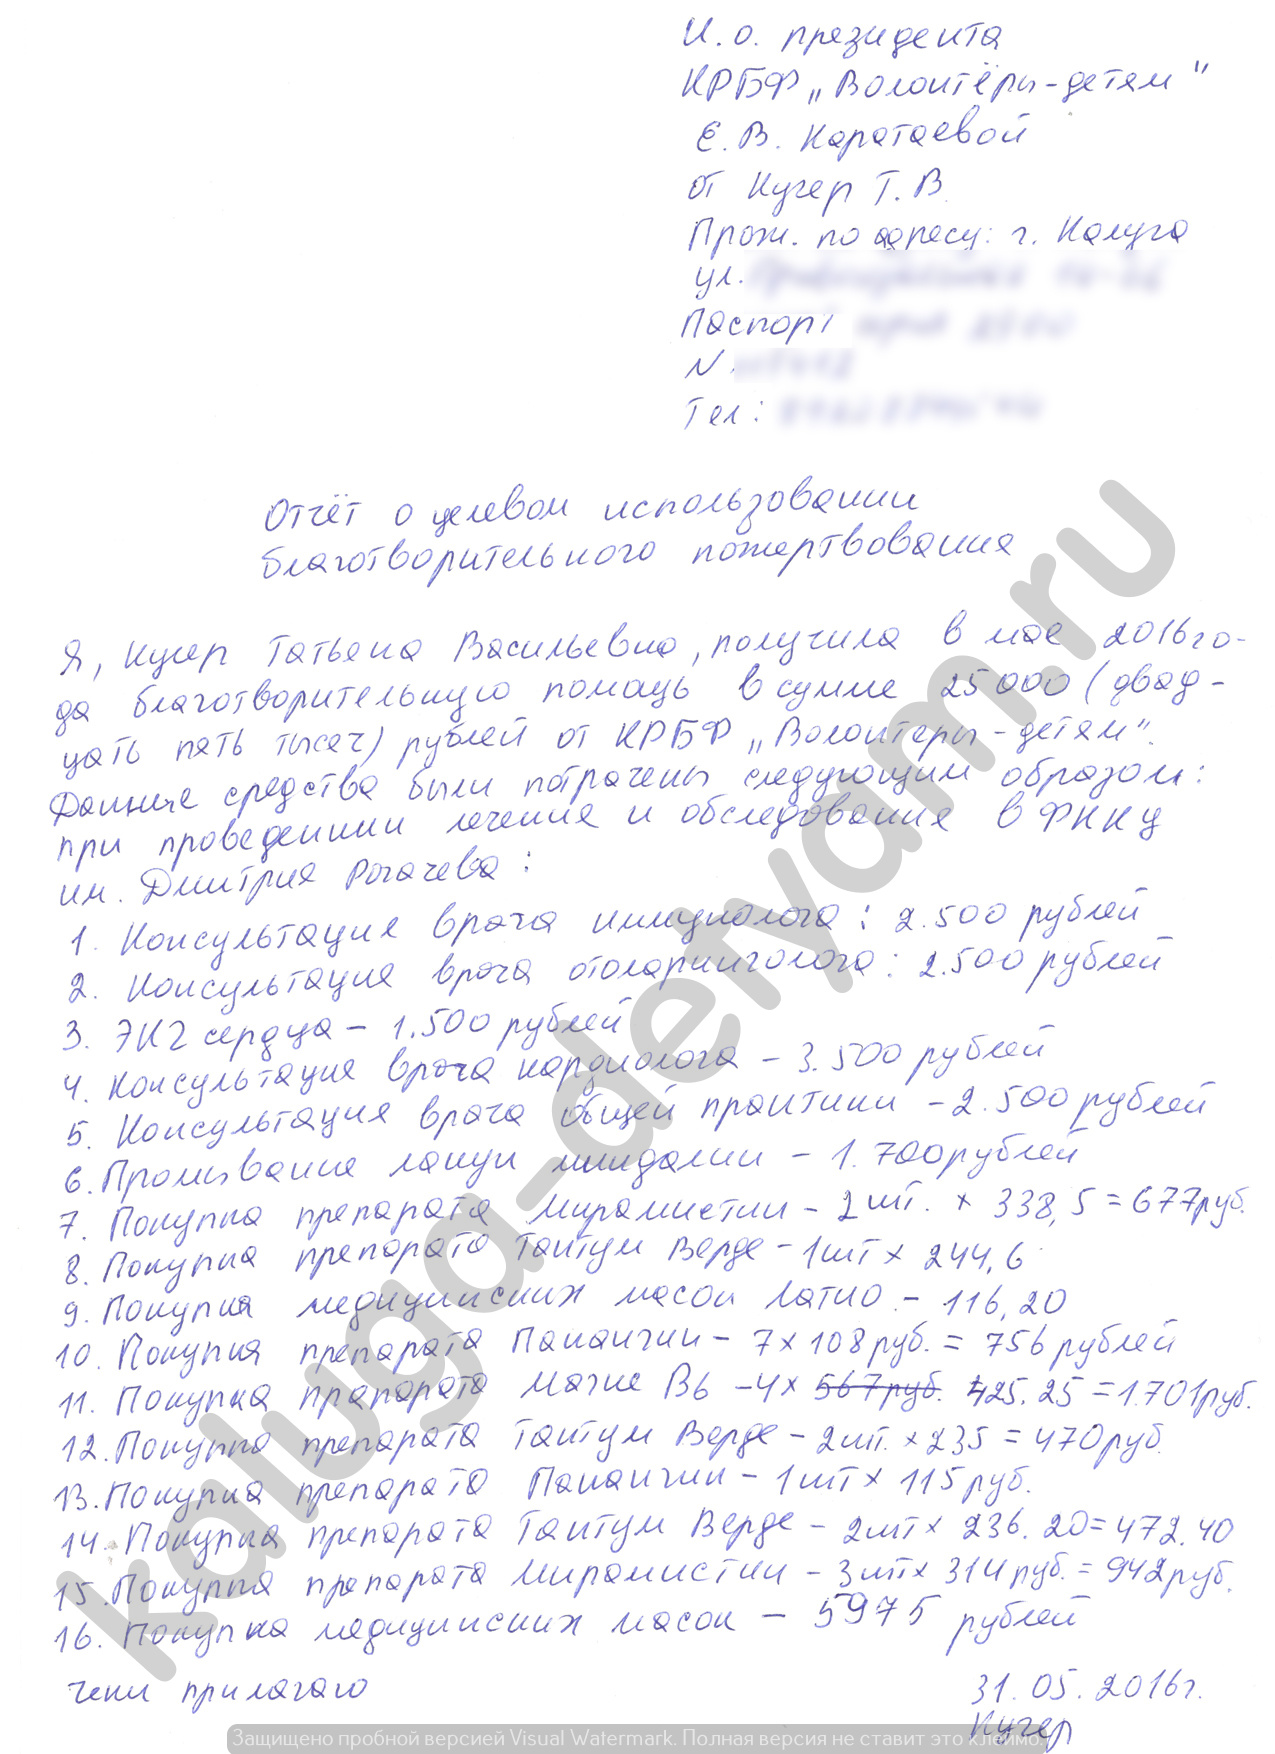 И.о. президента
КРБФ „Волонтёры-детям"
Е.В. Каратаевой
от Кучер Т.В.
Прож. по адресу: г. Калуга
ул.
Паспорт
N
Тел:
Отчёт о целевом использовании
благотворительного пожертвования
Я, Кучер Татьяна Васильевна, получила в мае 2016го-
да благотворительную помощь в сумме 25000 (двад-
цать пять тысяч) рублей от КРБФ „Волонтеры-детям".
Данные средства были потрачены следующим образом:
при проведении лечения и обследования в ФНКЦ
им. Дмитрия Рогачева:
1. Консультация врача иммунолога: 2.500 рублей
2. Консультация врача отоларинголога: 2.500 рублей
3. ЭКГ сердца – 1.500 рублей
4. Консультация врача кардиолога – 3.500 рублей
5. Консультация врача общей практики – 2.500 рублей
6. Промывание лакун миндалин – 1.700 рублей
7. Покупка препарата Мирамистин – 2 шт. х 338,5 = 677 руб.
8. Покупка препарата Тантум Верде – 1 шт х 244,6
9. Покупка медицинских масок Латио – 116,20
10. Покупка препарата Панангин – 7 х 108 руб. = 756 рублей
11. Покупка прапарата Магне В6 – 4 х 567 руб. 425.25 = 1.701 руб.
12. Покупка препарата Тантум Верде – 2 шт. х 235 = 470 руб.
13. Покупка препарата Панангин – 1 шт х 115 руб.
14. Покупка препарата Тантум Верде – 2 шт х 236.20 = 472.40
15. Покупка препарата Мирамистин – 3 шт х 314 руб. = 942 руб.
16. Покупка медицинских масок – 5975 рублей
чеки прилагаю
31.05.2016г.
Кучер
kaluga-detyam.ru
Защищено пробной версией Visual Watermark. Полная версия не ставит это клеймо.